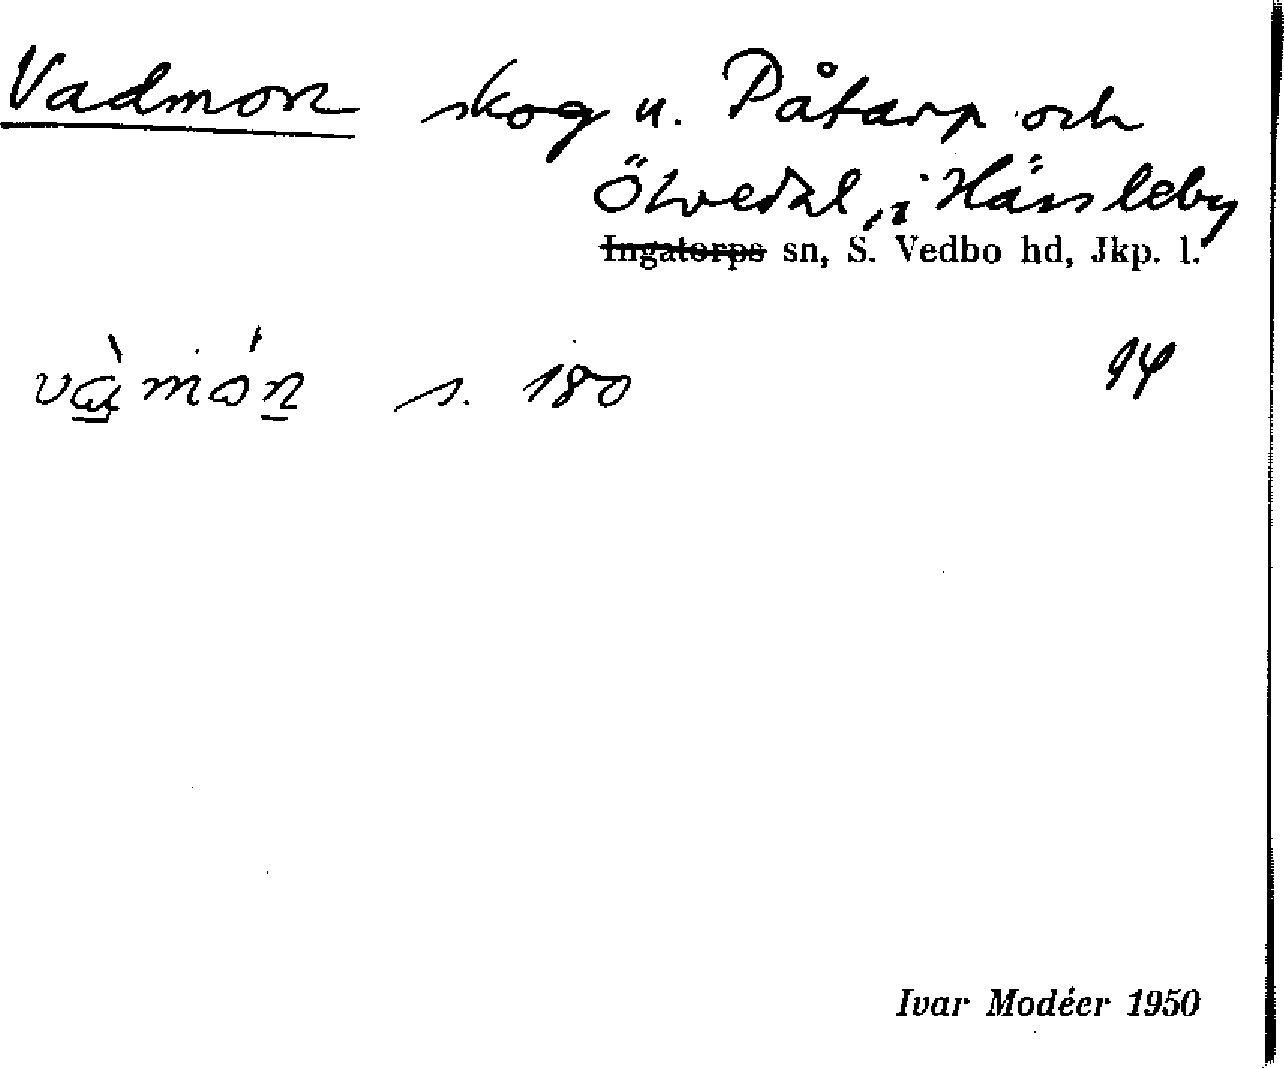 Vadmon skog u. Påtarp och
Ölvedal, i Hässleby
Ingatorps sn, S. Vedbo hd, Jkp. l.
s. 180 94
Ivar Modéer 1950